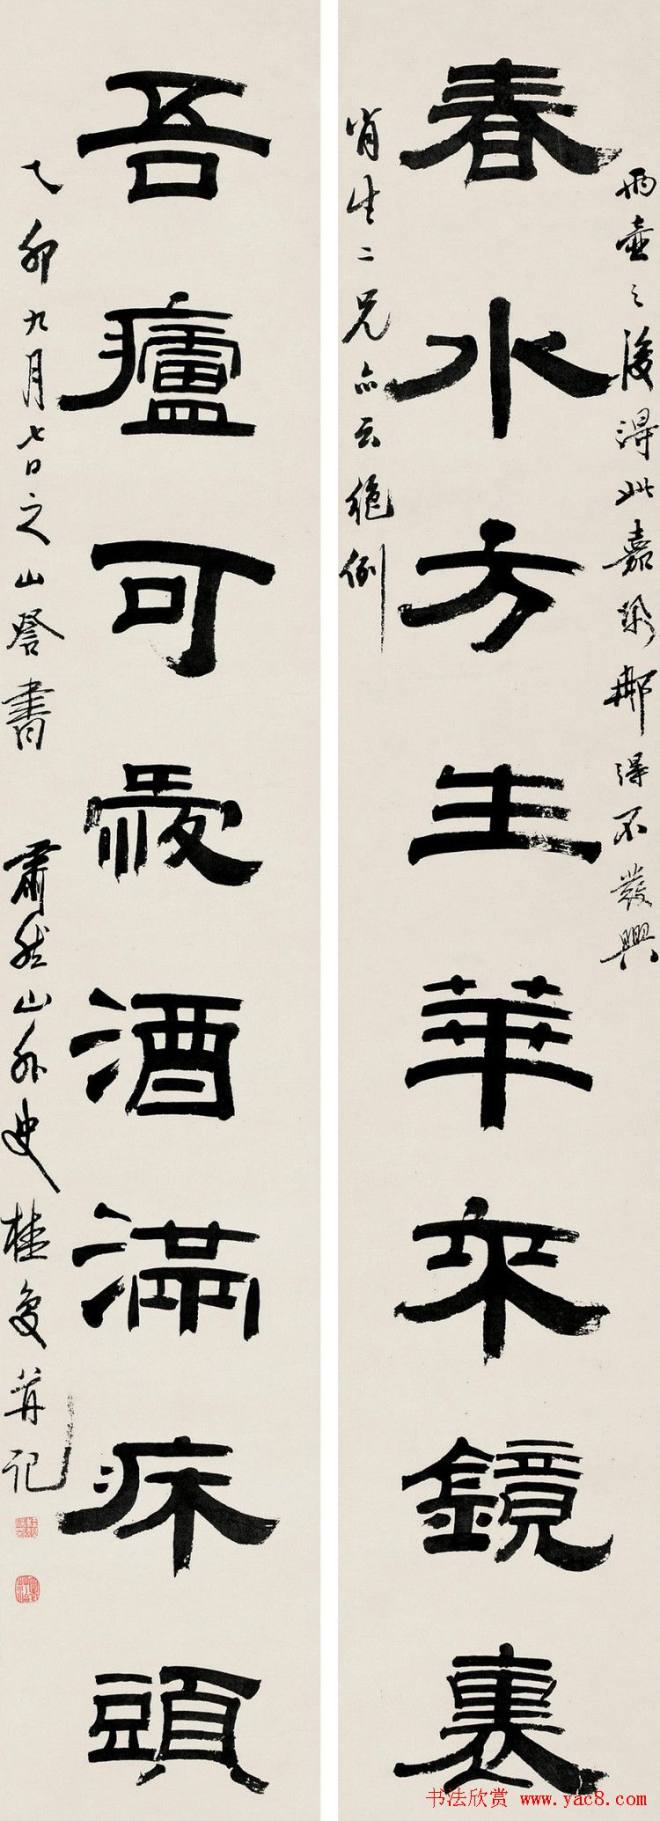 兩壺之後得此嘉那得不發興
春水方生華來鏡裏
肖生二兄亦云絕倒
吾廬可愛酒滿床頭
乙卯九月七日之山書 肅然山外史桂馥并記
书法欣赏 www.yac8.com